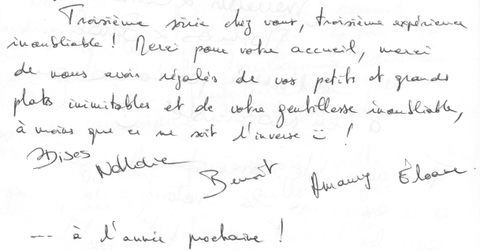 Troisième soirée chez vous, troisième expérience
inoubliable ! Merci pour votre accueil, merci
de nous avoir régalés de vos petits et grands
plats inimitables et de votre gentillesse inoubliable,
à moins que ce ne soit l'inverse !
Bises Nathalie Benoît Amaury Éloane
--- à l'année prochaine !